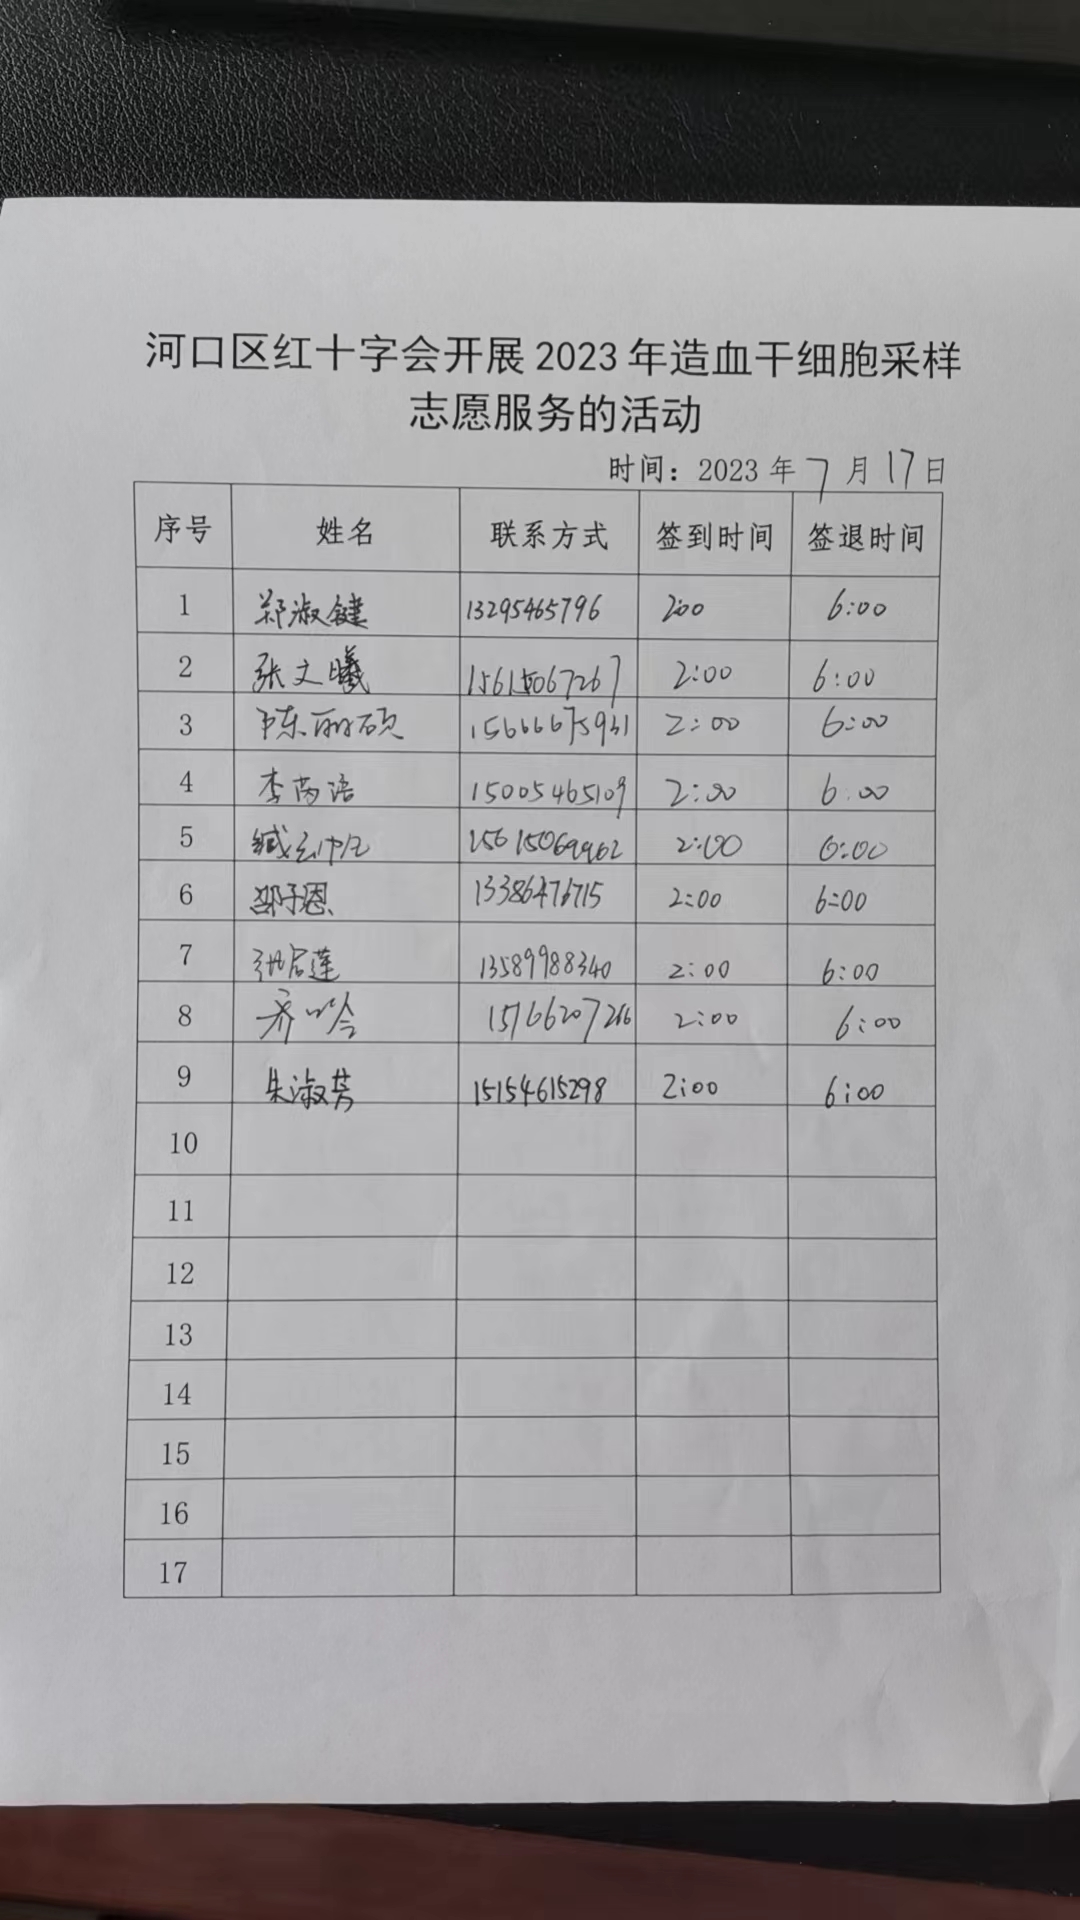 河口区红十字会开展2023年造血干细胞采样
志愿服务的活动
时间：2023年7月17日
序号 姓名 联系方式 签到时间 签退时间
1 郑淑键 13295465796 2:00 6:00
2 张文曦 15615067267 2:00 6:00
3 陈丽硕 15666675931 2:00 6:00
4 李芮语 15005465109 2:00 6:00
5 臧云帆 15615069962 2:00 6:00
6 邵子恩 13386476715 2:00 6:00
7 13589988340 2:00 6:00
8 15166207266 2:00 6:00
9 朱淑芳 15154615298 2:00 6:00
10
11
12
13
14
15
16
17